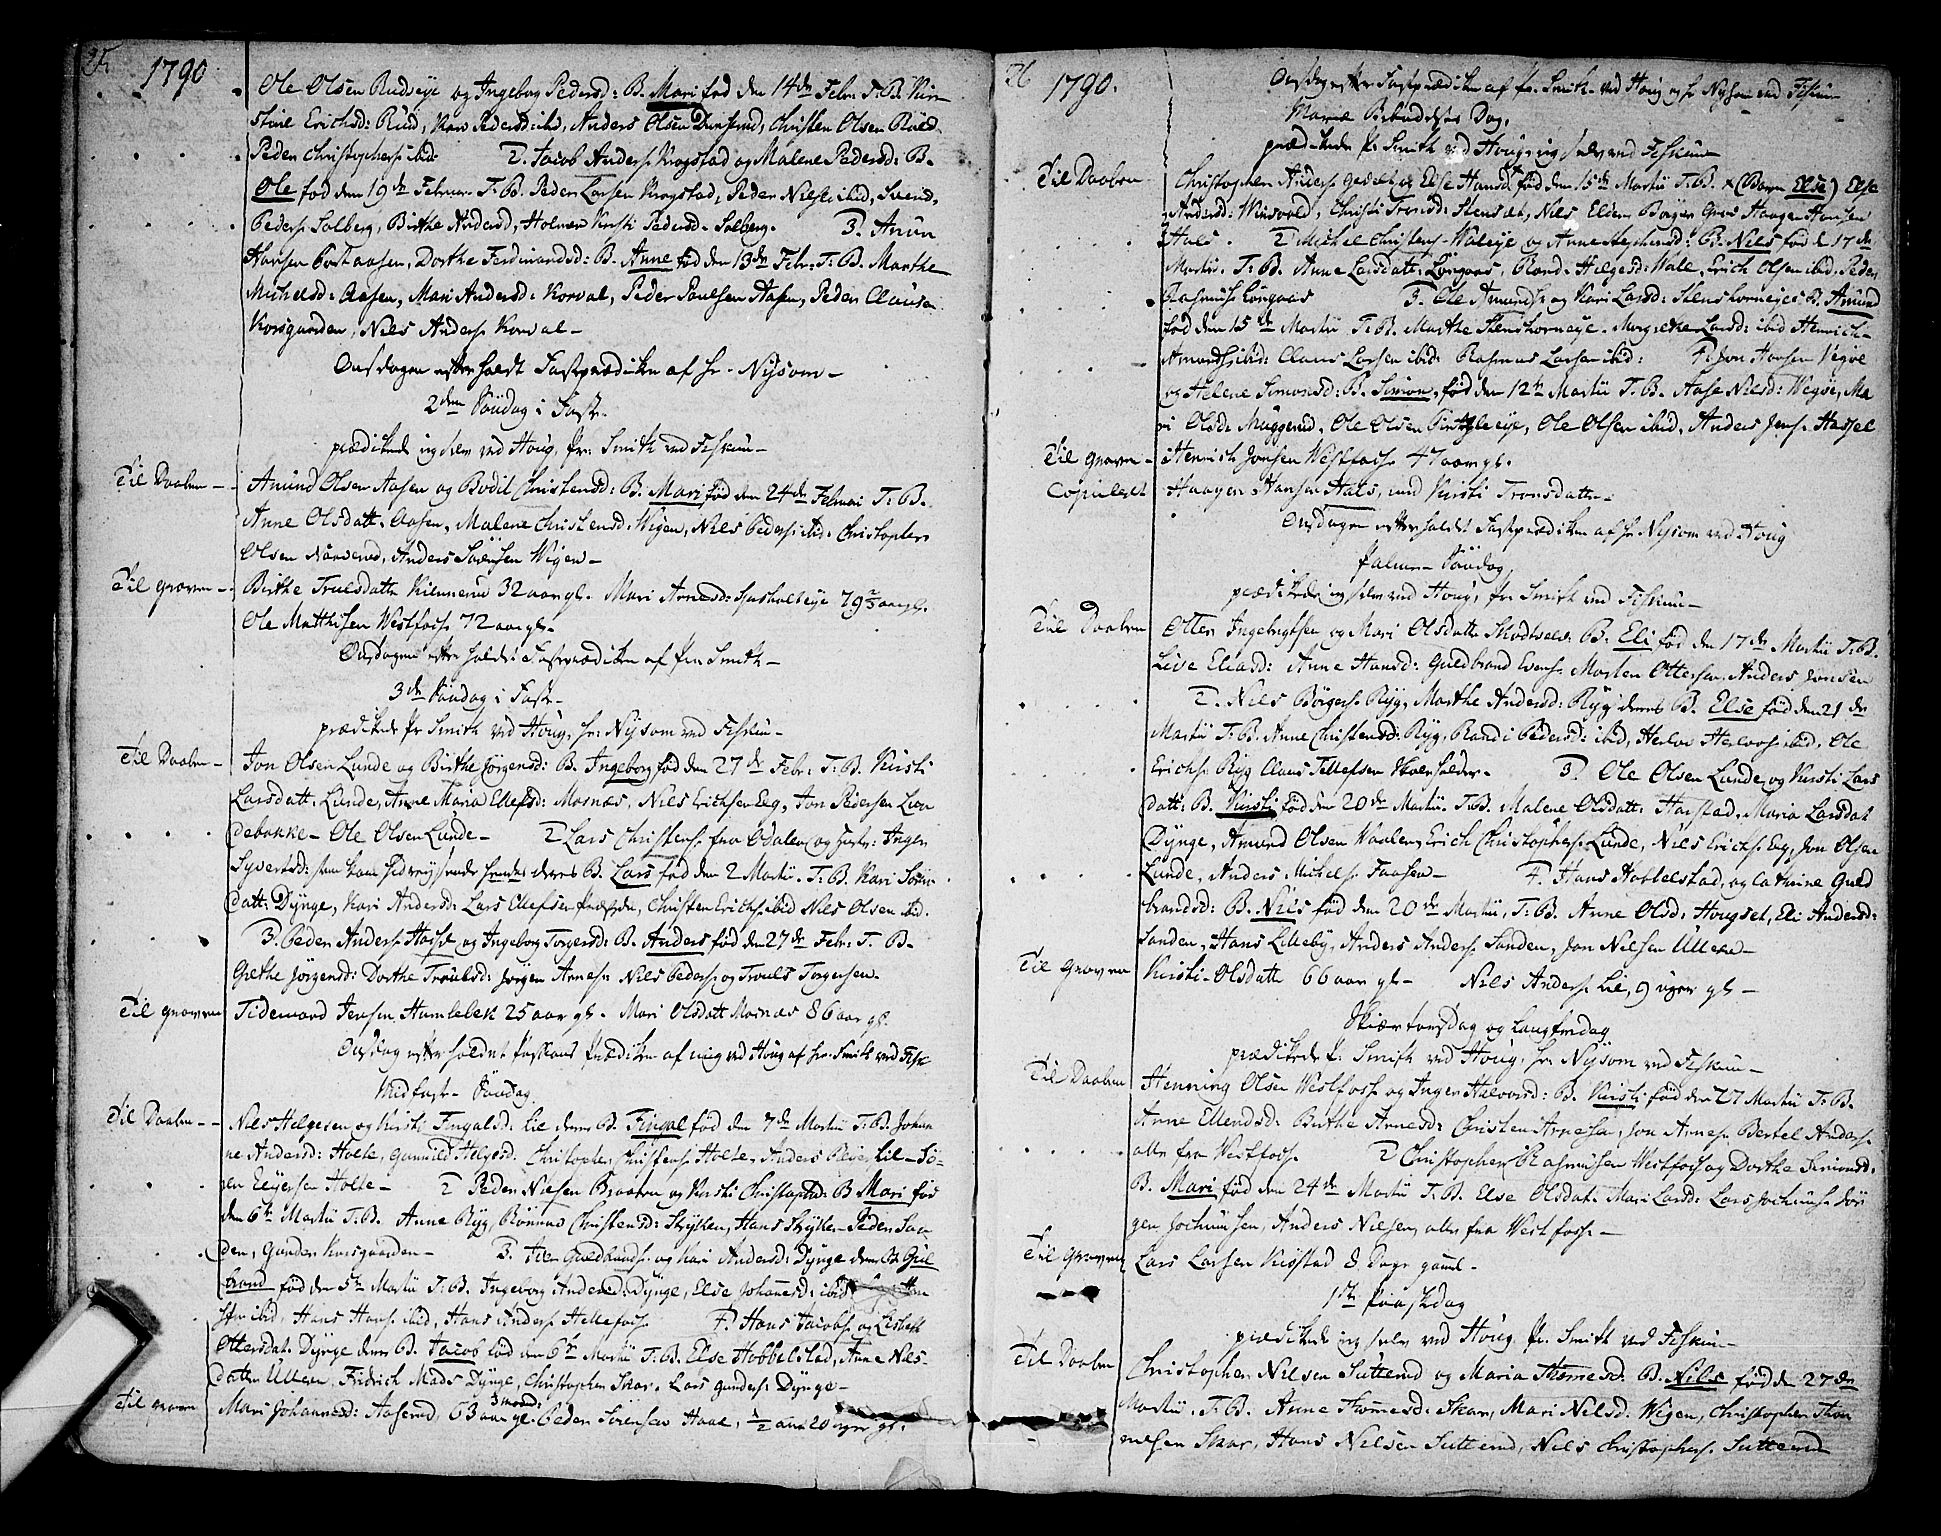 25
1790
Ole Olsen Rudseye og Ingebor Pedersd: B. Mari fød den 14de Febr. T. B. Kir
stine Erichsd: Rud, Karn Pedersd: ibid, Anders Olsen Dunserud, Christen Olsen Rud
Peder Christophers. ibid. 2. Jacob Anders. Krogstad og Malene Pedersd: B.
Ole fød den 19de Februar. T. B. Peder Larsen Krogstad, Peder Nilsen ibid, Svend
Peders. Solberg, Birthe Andersd, Holmen Kirsti Pedersd. Solberg. 3. Amun
Hansen Aasen, Dorthe Ferdinandsd: B. Anne fød den 13de Febr. T. B. Marthe
Michelsd: Aasen, Mari Andersd: Korval, Peder Poulsen Aasen, Peder Clausen
Korsgaarden, Nils Anders. Korval-
Onsdagen efter holdt Fastprædiken af Hr. Nysom-
2den Søndag i Fast.
prædikede ieg selv ved Houg, Hr. Smith ved Fiskum-
Til Daaben- Amund Olsen Aasen og Bodil Christensd: B. Mari fød den 24de Februari T. B.
Anne Olsdatt. Aasen, Malene Christensd: Wigen, Nils Peders: ibid: Christopher
Olsen Narverud, Anders Sørensen Wigen-
Til Graven- Birthe Truelsdatte Kinnerud 32 aar gl. Mari Arnesd: 79 aar gl.
Ole Matthisen Westfoss 72 aar gl.
Onsdagen efter holdt Fastprædiken af Hr Smith-
3de Søndag i Fast-
prædikede Hr Smith ved Houg, Hr: Nysom ved Fiskum-
Til Daaben- Jon Olsen Lunde og Birthe Jørgensd: B. Ingeborg fød den 27de Febr. T. B. Kirsti
Larsdatt. Lunde, Anne Maria Ellefsd: Mornæs, Nils Erichsen Eeg, Jon Pedersen Lun
debakke- Ole Olsen Lunde- 2 Lars Christens. fra Odalen og Hustr: Inger
Syvertsd: som kom hid reysende deres B. Lars fød den 2 Martii. T. B. Kari
datt: Dynge, Kari Andersd: Lars Ellefsen Præstden, Christen Erichs. ibid Nils Olsen ibd.
3. Peder Anders. Hassel og Ingeborg Torgersd: B. Anders fød den 27de Febr. T. B.
Grethe Jørgensd: Dorthe Truulsd: Jørgen Arnes. Nils Peders. og Trouls Torgersen.
Til Graven Tidemand Jensen Humlebek 25 aar gl. Mari Olsdatt Mornæs 86 aar gl.
Onsdag efter holdet Passions Prædiken af mig ved Houg af Hr: Smith ved Fisk.
Midfast- Søndag.
Til Daaben- Nils Helgesen og Kirsti Fingalsd. Lie deres B. Fingal fød den 7de Martii T. B. Johan
ne Andersd: Holte, Gunnild Helgesd. Christopher Christens. Holte, Anders Lie- Sø-
ren Holte- 2 Peder Nilsen Braaten og Kirsti Christophersd: B Mari fød
den 6te Martii T. B. Anne Ryg, Rønnau Christensd: Skycken, Hans Skycke- Peder San
den, Gunder Korsgaarden- 3. Iver Guldbrands. og Kari Andersd: Dynge deres B. Gul
brand fød den 5te Martii T. B. Ingeborg Andersd: Dynge, Else Johansd: ibid
ibid, Hans Hans. ibid, Hans Anders. Hellefoss. 4. Hans Jacobs. og Lisbeth
Ottersdat. Dynge deres B. Jacob fød den 6te Martii T. B. Else Hobbelstad, Anne Nils-
datter Ullern, Fridrich Mads. Dynge, Christopher Skar. Lars Gunders. Dynge-
Til Graven Mari Johannesd: Aaserud, 63 aar 3 maand: gl- Peder Sørensen Haae, ½ aar 20 uger gl.
26
1790.
Onsdag efter Fastprædiken af Hr. Smith ved Houg og Hr Nysom ved Fiskum-
Mariæ Bebudelses Dag.
prædikede Hr Smith ved Houg, ieg selv ved Fiskum-
Til Daaben Christopher Anders. og Else Hansd: fød den 15de Martii T. B. x (Barn Else) Else
Andersd: Christi Tronsd: Stenset, Nils Børger Haagen Hansen
Hals. 2 Michel Christens. Waleye og Anne Stephensd: B. Nils fød d 17de
Martii. T. B. Anne Larsdatt: Longaas, Rand. Helgesd: Wale, Erich Olsen ibid, Peder
Rasmus. Longaas 3. Ole Amunds. og Kari Larsd: Stenshorneyes B. Amund
fød den 15de Martii T. B. Marthe Stenshorneye. Margrethe Larsd: ibid Henrich
Amunds. ibid: Claus Larsen ibid: Rasmus Larsen ibid: 4. Jon Hansen Vegøe
og Helene Simonsd: B. Simon, fød den 12te Martii T. B. Aase Nilsd: Wegøe, Ma
ri Olsd: Muggerud, Ole Olsen, Ole Olsen ibid, Anders Jens. Hassel
Til Graven- Henrich Jonsen Westfoss. 47 aar gl.
Copuleret Haagen Hansen Hals, med Kirsti Tronsdatte-
Onsdagen efter holdt Fastprædiken af Hr. Nysom ved Houg
Palme- Søndag
prædikede ieg selv ved Houg, Hr. Smith ved Fiskum-
Til Daaben Otter Ingebrigtsen og Mari Olsdatte B. Eli fød den 17de Martii T. B.
Live Eliasd: Anne Hansd: Guldbrand Evens. Morten Ottersen, Anders Jonsen
2. Nils Børgers. Ryg, Marthe Andersd: Ryg deres B. Else fød den 21de
Martii T. B. Anne Christensd: Ryg, Randi Pedersd: ibid, Herlov Herlovs. ibid. Ole
Erichs. Ryg Claus Tollefsen. 3. Ole Olsen Lunde og Kirsti Lars
datt: B. Kirsti fød den 20de Martii. T. B. Malene Olsdatt: Harstad, Maria Larsdat
Dynge, Amund Olsen Waalen, Erich Christophers. Lunde, Nils Erichs. Eeg, Jon Olsen
Lunde, Anders Michels. Faasen- 4. Hans Hobbelstad, og Cathrine Guld
brandsd: B. Nils fød den 20de Martii, T. B. Anne Olsd: Hougset, Eli Andersd:
Sanden, Hans Lilleby, Anders Anders. Sanden, Jon Nielsen Ullern-
Til Graven Kirsti Olsdatte 66 aar gl- Nils Anders. Lie, 9 uger gl-
Skiærtorsdag og Langfredag
prædikede Hr. Smith ved Houg, Hr: Nysom ved Fiskum-
Til Daaben Henning Olsen Westfoss. og Inger Halvorsd: B. Kirsti fød den 27 Martii T. B.
Anne Ellendsd: Birthe Arnesd: Christen Arnesen, Jon Arnes. Bertel Anders.
alle fra Vestfoss. 2 Christopher Rasmusen Westfoss og Dorthe Simonsd:
B. Mari fød den 24de Martii T. B. Else Olsdat. Mari Larsd: Lars Jochums. Jør
gen Jochumsen, Anders Nielsen, alle fra Westfoss-
Til Graven Lars Larsen Krøstad 8 Dage gaml-
1ste Paaskedag
prædikede ieg selv ved Houg Hr. Smith ved Fiskum-
Til Daaben Christopher Nielsen Sutterud og Maria Thomesd: B. Nils fød d 27de
Martii, T. B. Anne Thomesd: Skar, Mari Nilsd: Wigen, Christopher Thom
mesen Skar, Hans Nielsen Sutterud, Niels Christophers. Sutterud